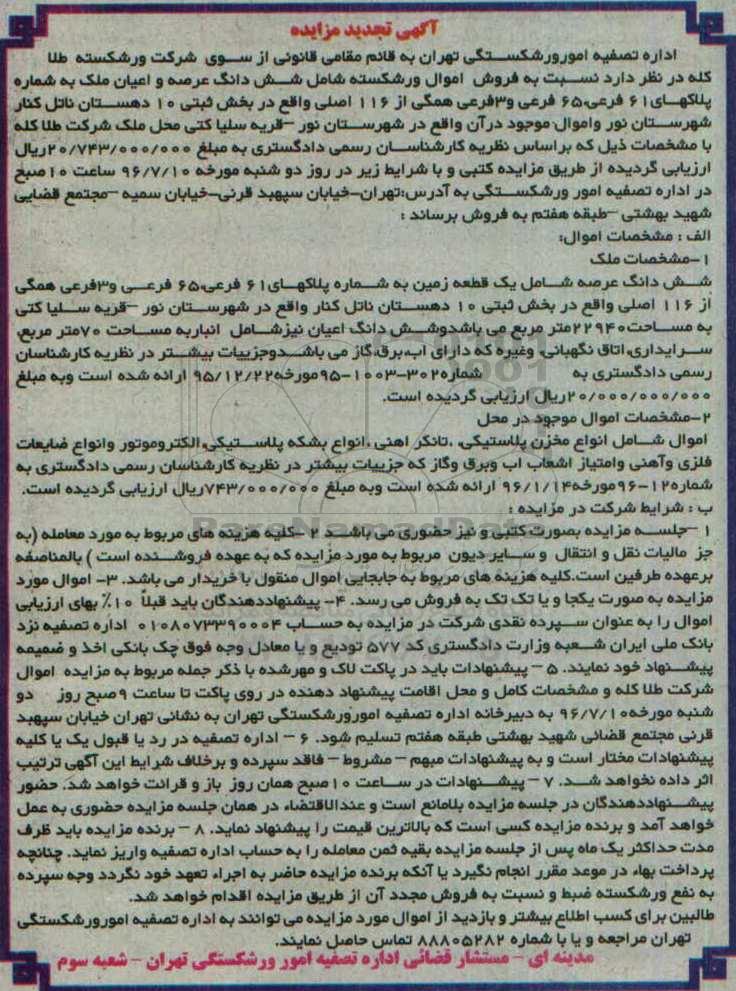 آگهی تجدید مزایده
اداره تصفیه امورورشکستگی تهران به قائم مقامی قانونی از سوی شرکت ورشکسته طلا
کله در نظر دارد نسبت به فروش اموال ورشکسته شامل شش دانگ عرصه و اعیان ملک به شماره
پلاکهای۶۱ فرعی،۶۵ فرعی و۳فرعی همگی از ۱۱۶ اصلی واقع در بخش ثبتی ۱۰ دهستان ناتل کنار
شهرستان نور واموال موجود درآن واقع در شهرستان نور –قریه سلیا کتی محل ملک شرکت طلا کله
با مشخصات ذیل که براساس نظریه کارشناسان رسمی دادگستری به مبلغ ۲۰/۷۴۳/۰۰۰/۰۰۰ریال
ارزیابی گردیده از طریق مزایده کتبی و با شرایط زیر در روز دو شنبه مورخه ۹۶/۷/۱۰ ساعت ۱۰صبح
در اداره تصفیه امور ورشکستگی به آدرس:تهران-خیابان سپهبد قرنی-خیابان سمیه –مجتمع قضایی
شهید بهشتی –طبقه هفتم به فروش برساند :
الف : مشخصات اموال:
۱-مشخصات ملک
شش دانگ عرصه شامل یک قطعه زمین به شماره پلاکهای۶۱ فرعی،۶۵ فرعی و۳فرعی همگی
از ۱۱۶ اصلی واقع در بخش ثبتی ۱۰ دهستان ناتل کنار واقع در شهرستان نور –قریه سلیا کتی
به مساحت۲۲۹۴۰متر مربع می باشدوشش دانگ اعیان نیزشامل انباربه مساحت ۷۰متر مربع،
سرایداری،اتاق نگهبانی، وغیره که دارای اب،برق،گاز می باشدوجزییات بیشتر در نظریه کارشناسان
رسمی دادگستری به شماره۳۰۲-۱۰۰۳-۹۵مورخه۹۵/۱۲/۲۲ ارائه شده است وبه مبلغ
۲۰/۰۰۰/۰۰۰/۰۰۰ریال ارزیابی گردیده است.
۲-مشخصات اموال موجود در محل
اموال شامل انواع مخزن پلاستیکی، ،تانکر اهنی ،انواع بشکه پلاستیکی،الکتروموتور وانواع ضایعات
فلزی وآهنی وامتیاز اشعاب اب وبرق وگاز که جزییات بیشتر در نظریه کارشناسان رسمی دادگستری به
شماره۱۲-۹۶مورخه۹۶/۱/۱۴ ارائه شده است وبه مبلغ ۷۴۳/۰۰۰/۰۰۰ریال ارزیابی گردیده است.
ب : شرایط شرکت در مزایده :
۱ –جلسه مزایده بصورت کتبی و نیز حضوری می باشد ۲ –کلیه هزینه های مربوط به مورد معامله (به
جز مالیات نقل و انتقال و سایر دیون مربوط به مورد مزایده که به عهده فروشنده است ) بالمناصفه
برعهده طرفین است.کلیه هزینه های مربوط به جابجایی اموال منقول با خریدار می باشد. ۳- اموال مورد
مزایده به صورت یکجا و یا تک تک به فروش می رسد. ۴- پیشنهاددهندگان باید قبلاً ۱۰٪ بهای ارزیابی
اموال را به عنوان سپرده نقدی شرکت در مزایده به حساب ۰۱۰۸۰۷۳۳۹۰۰۰۴ اداره تصفیه نزد
بانک ملی ایران شعبه وزارت دادگستری کد ۵۷۷ تودیع و یا معادل وجه فوق چک بانکی اخذ و ضمیمه
پیشنهاد خود نمایند. ۵ – پیشنهادات باید در پاکت لاک و مهرشده با ذکر جمله مربوط به مزایده اموال
شرکت طلا کله و مشخصات کامل و محل اقامت پیشنهاد دهنده در روی پاکت تا ساعت ۹صبح روز دو
شنبه مورخه۹۶/۷/۱۰ به دبیرخانه اداره تصفیه امورورشکستگی تهران به نشانی تهران خیابان سپهبد
قرنی مجتمع قضائی شهید بهشتی طبقه هفتم تسلیم شود. ۶ – اداره تصفیه در رد یا قبول یک یا کلیه
پیشنهادات مختار است و به پیشنهادات مبهم – مشروط – فاقد سپرده و برخلاف شرایط این آگهی ترتیب
اثر داده نخواهد شد. ۷ – پیشنهادات در ساعت ۱۰صبح همان روز باز و قرائت خواهد شد. حضور
پیشنهاددهندگان در جلسه مزایده بلامانع است و عندالاقتضاء در همان جلسه مزایده حضوری به عمل
خواهد آمد و برنده مزایده کسی است که بالاترین قیمت را پیشنهاد نماید. ۸ – برنده مزایده باید ظرف
مدت حداکثر یک ماه پس از جلسه مزایده بقیه ثمن معامله را به حساب اداره تصفیه واریز نماید. چنانچه
پرداخت بهاء در موعد مقرر انجام نگیرد یا آنکه برنده مزایده حاضر به اجراء تعهد خود نگردد وجه سپرده
به نفع ورشکسته ضبط و نسبت به فروش مجدد آن از طریق مزایده اقدام خواهد شد.
طالبین برای کسب اطلاع بیشتر و بازدید از اموال مورد مزایده می توانند به اداره تصفیه امورورشکستگی
تهران مراجعه و یا با شماره ۸۸۸۰۵۲۸۲ تماس حاصل نمایند.
مدینه ای – مستشار قضائی اداره تصفیه امور ورشکستگی تهران – شعبه سوم